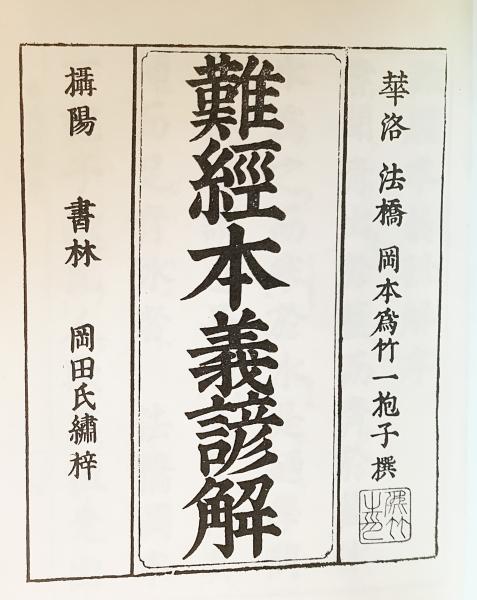 華洛 法橋 岡本爲竹一抱子撰
難經本義諺解
攝陽 書林 岡田氏繡梓